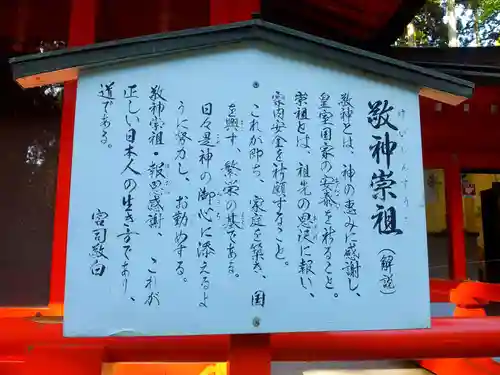 敬神崇祖
けいしんすうそ
（解説）
敬神とは、神の恵みに感謝し、
皇室国家の安泰を祈ること。
崇祖とは、祖先の恩徳に報い、
家内安全を祈願すること。
これが即ち、家庭を築き、国
を興す、繁栄の基である。
日々是神の御心に添えるよ
うに努力し、お勤めする。
敬神崇祖・報恩感謝、これが
正しい日本人の生き方であり、
道である。
宮司敬白